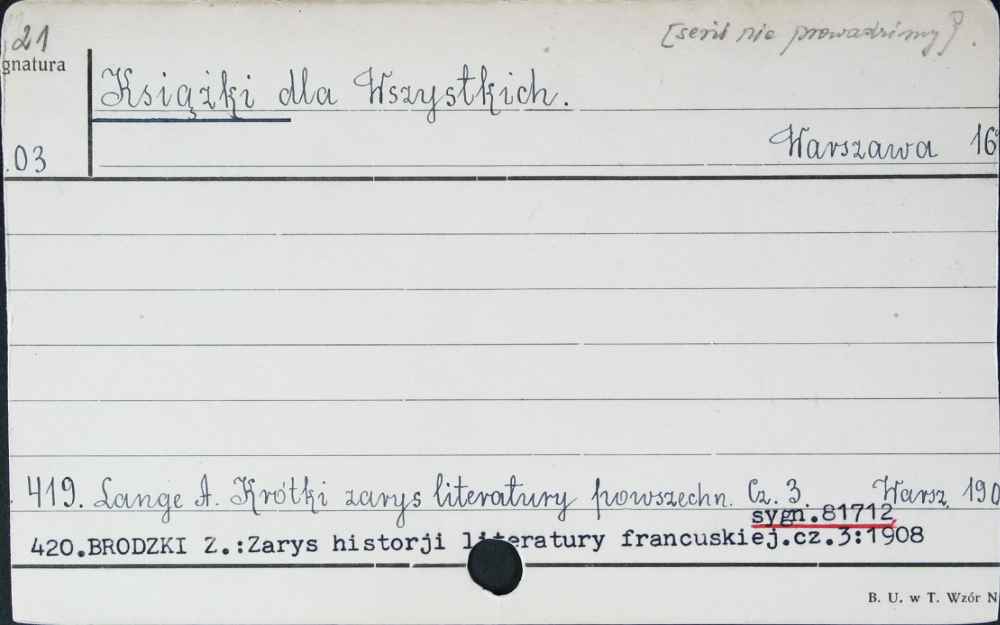 21
[serii nie prowadzimy]
gnatura
Książki dla Wszystkich.
03
Warszawa 16
419. Lange A. Krótki zarys literatury powszechn. Cz. 3 Warsz. 190
sygn.81712
420.BRODZKI Z.:Zarys historji literatury francuskiej.cz.3:1908
B. U. w T. Wzór N